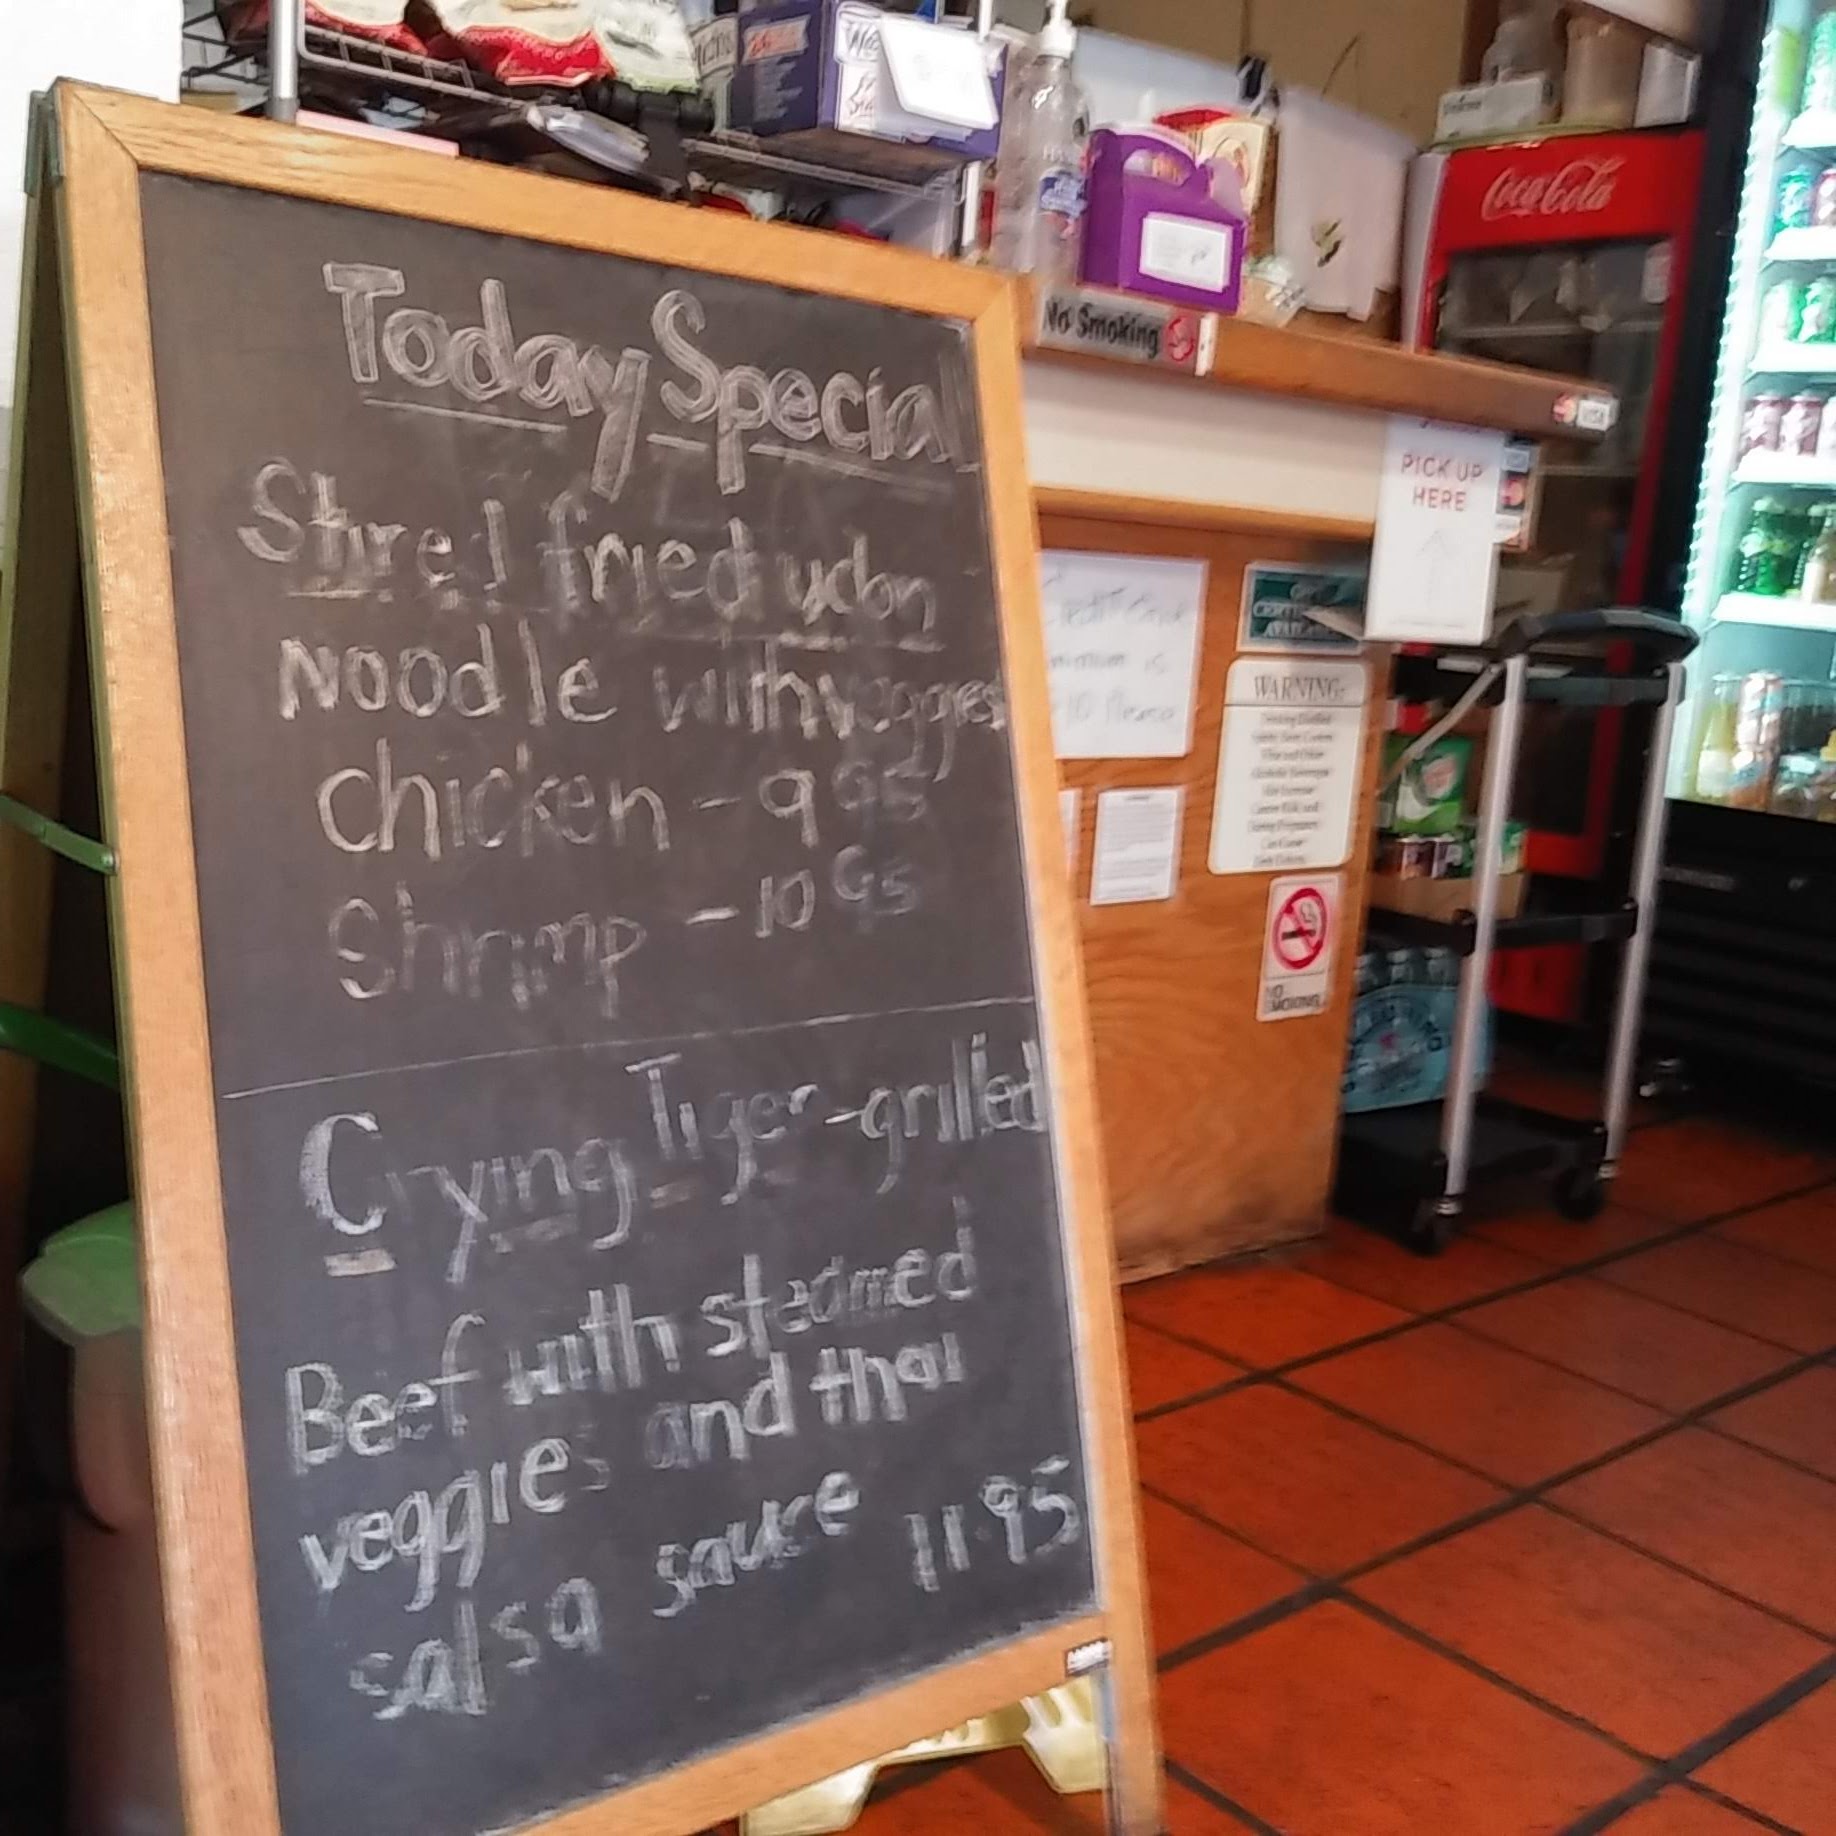 Today Special
Stired fried udon
Noodle with veggies
chicken - 9 95
Shrimp - 10 95
Crying Tiger-grilled
Beef with steamed
veggies and thai
salsa sauce 11.95
Coca-Cola
No Smoking
VISA
PICK UP
HERE
Credit Card
minimum is
$10 Please
WARNING:
NO
SMOKING